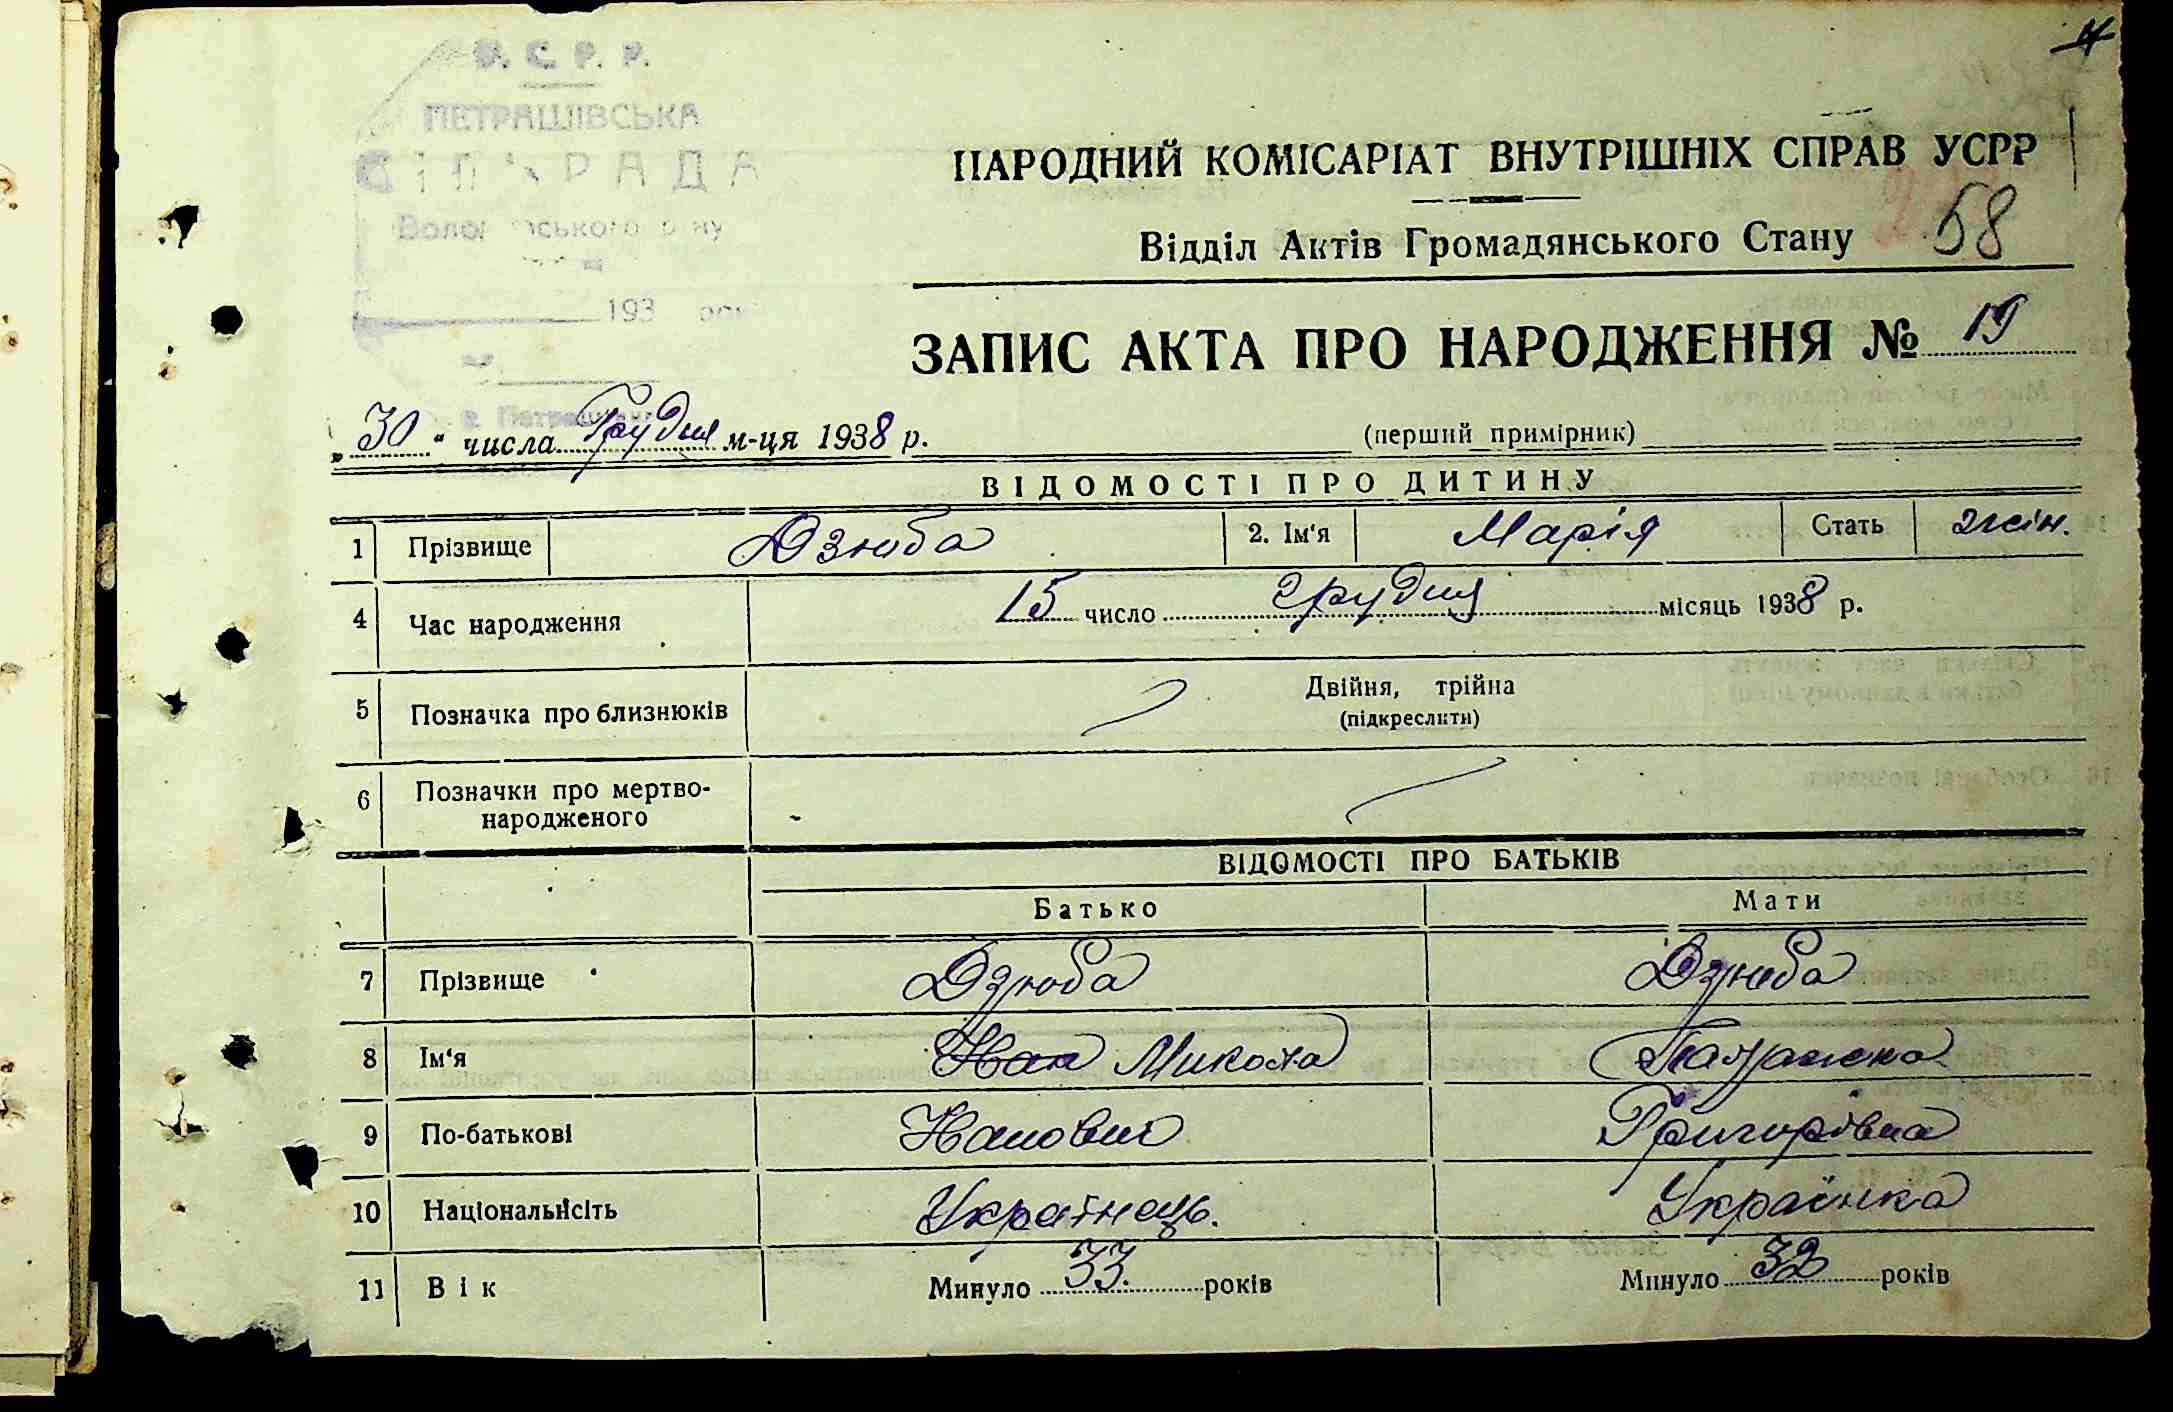 У. С. Р. Р.
ПЕТРАШІВСЬКА
СІЛЬРАДА
193 року
с. Петрашівка
НАРОДНИЙ КОМІСАРІАТ ВНУТРІШНІХ СПРАВ УСРР
Відділ Актів Громадянського Стану 58
ЗАПИС АКТА ПРО НАРОДЖЕННЯ № 19
„30" числа Грудня м-ця 1938 р. (перший примірник)
ВІДОМОСТІ ПРО ДИТИНУ
1 Прізвище Дзюба 2. Ім'я Марія Стать жін.
4 Час народження 15 число грудня місяць 1938 р.
5 Позначка про близнюків Двійня, трійня
(підкреслити)
6 Позначки про мертво-
народженого
ВІДОМОСТІ ПРО БАТЬКІВ
Батько Мати
7 Прізвище Дзюба Дзюба
8 Ім'я Иван Микола Палажка
9 По-батькові Григорівна
10 Національність Українець. Українка
11 Вік Минуло 33 років Минуло 32 років